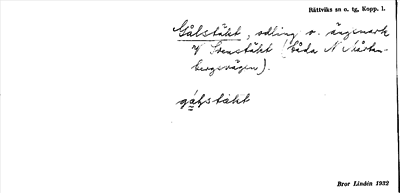 Rättviks sn o. tg, Kopp. l.
Gålstäkt, odling o. ängsmark
V Svenstäkt (båda N Mårtens-
bergsvägen).
gålstäkt
Bror Lindén 1932